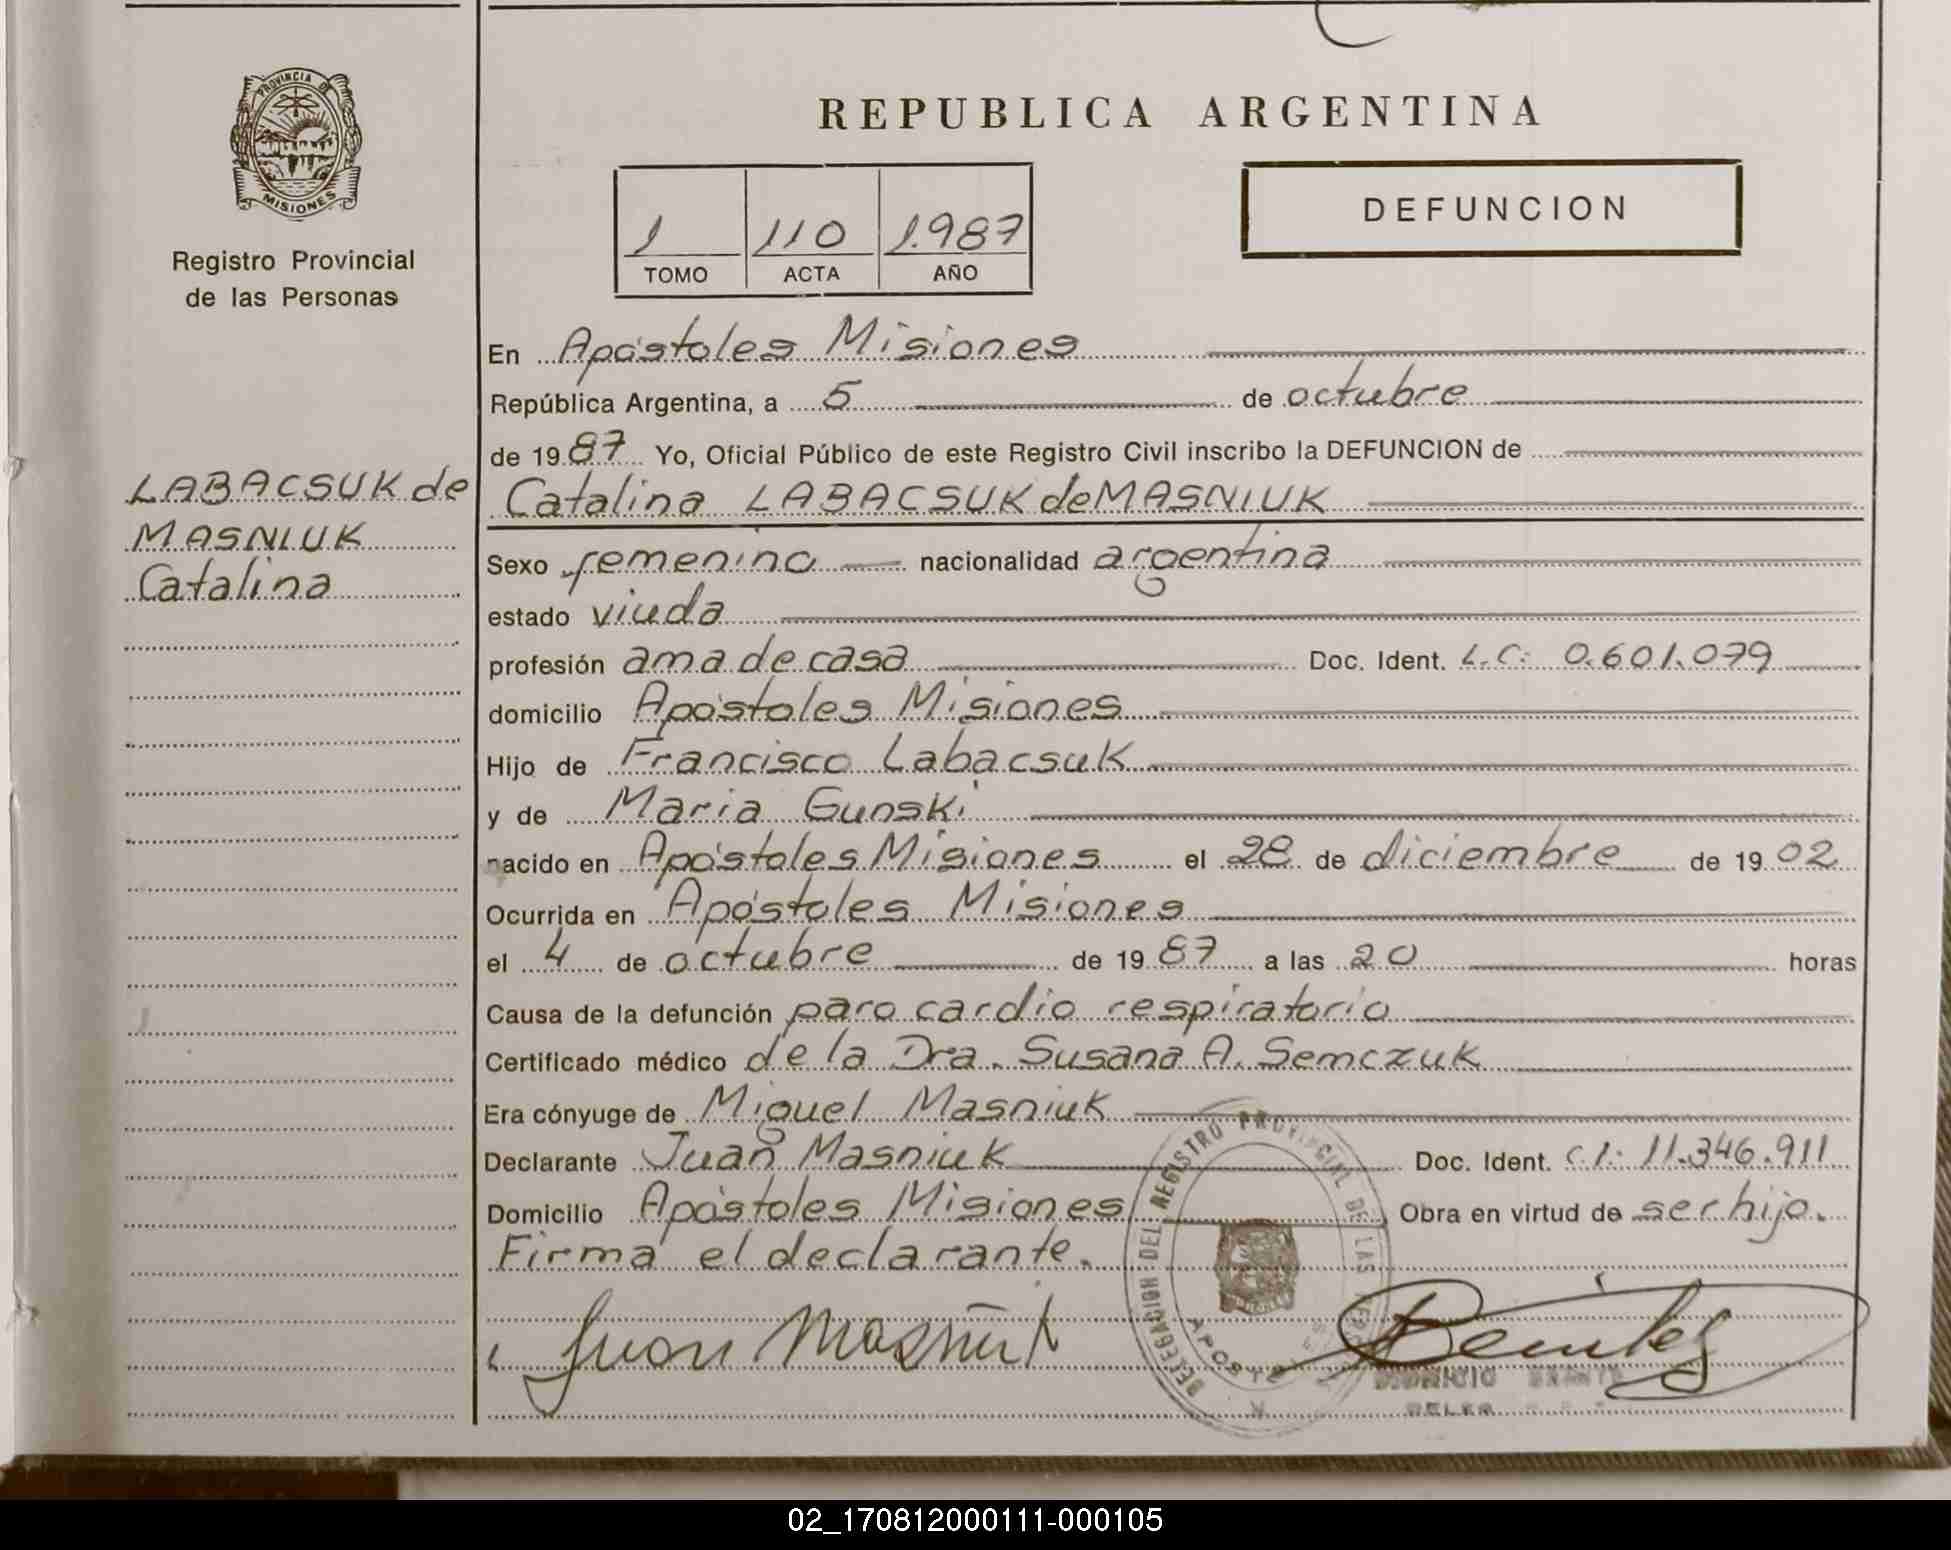 REPUBLICA ARGENTINA
PROVINCIA DE
MISIONES
Registro Provincial
de las Personas
1 110 1.987
TOMO ACTA AÑO
DEFUNCION
LABACSUK de
MASNIUK
Catalina
En Apóstoles Misiones
República Argentina, a 5 de octubre
de 1987 Yo, Oficial Público de este Registro Civil inscribo la DEFUNCION de
Catalina LABACSUK de MASNIUK
Sexo femenino nacionalidad argentina
estado viuda
profesión ama de casa Doc. Ident. L.C: 0.601.079
domicilio Apóstoles Misiones
Hijo de Francisco Labacsuk
y de Maria Gunski
nacido en Apóstoles Misiones el 28 de diciembre de 1902
Ocurrida en Apóstoles Misiones
el 4 de octubre de 1987 a las 20 horas
Causa de la defunción paro cardio respiratorio
Certificado médico de la Dra. Susana A. Semczuk
Era cónyuge de Miguel Masniuk
Declarante Juan Masniuk Doc. Ident. C.I: 11.346.911
Domicilio Apóstoles Misiones Obra en virtud de ser hijo.
Firma el declarante.
Juan
DELEGACION DEL REGISTRO PROVINCIAL DE LAS
02_170812000111-000105